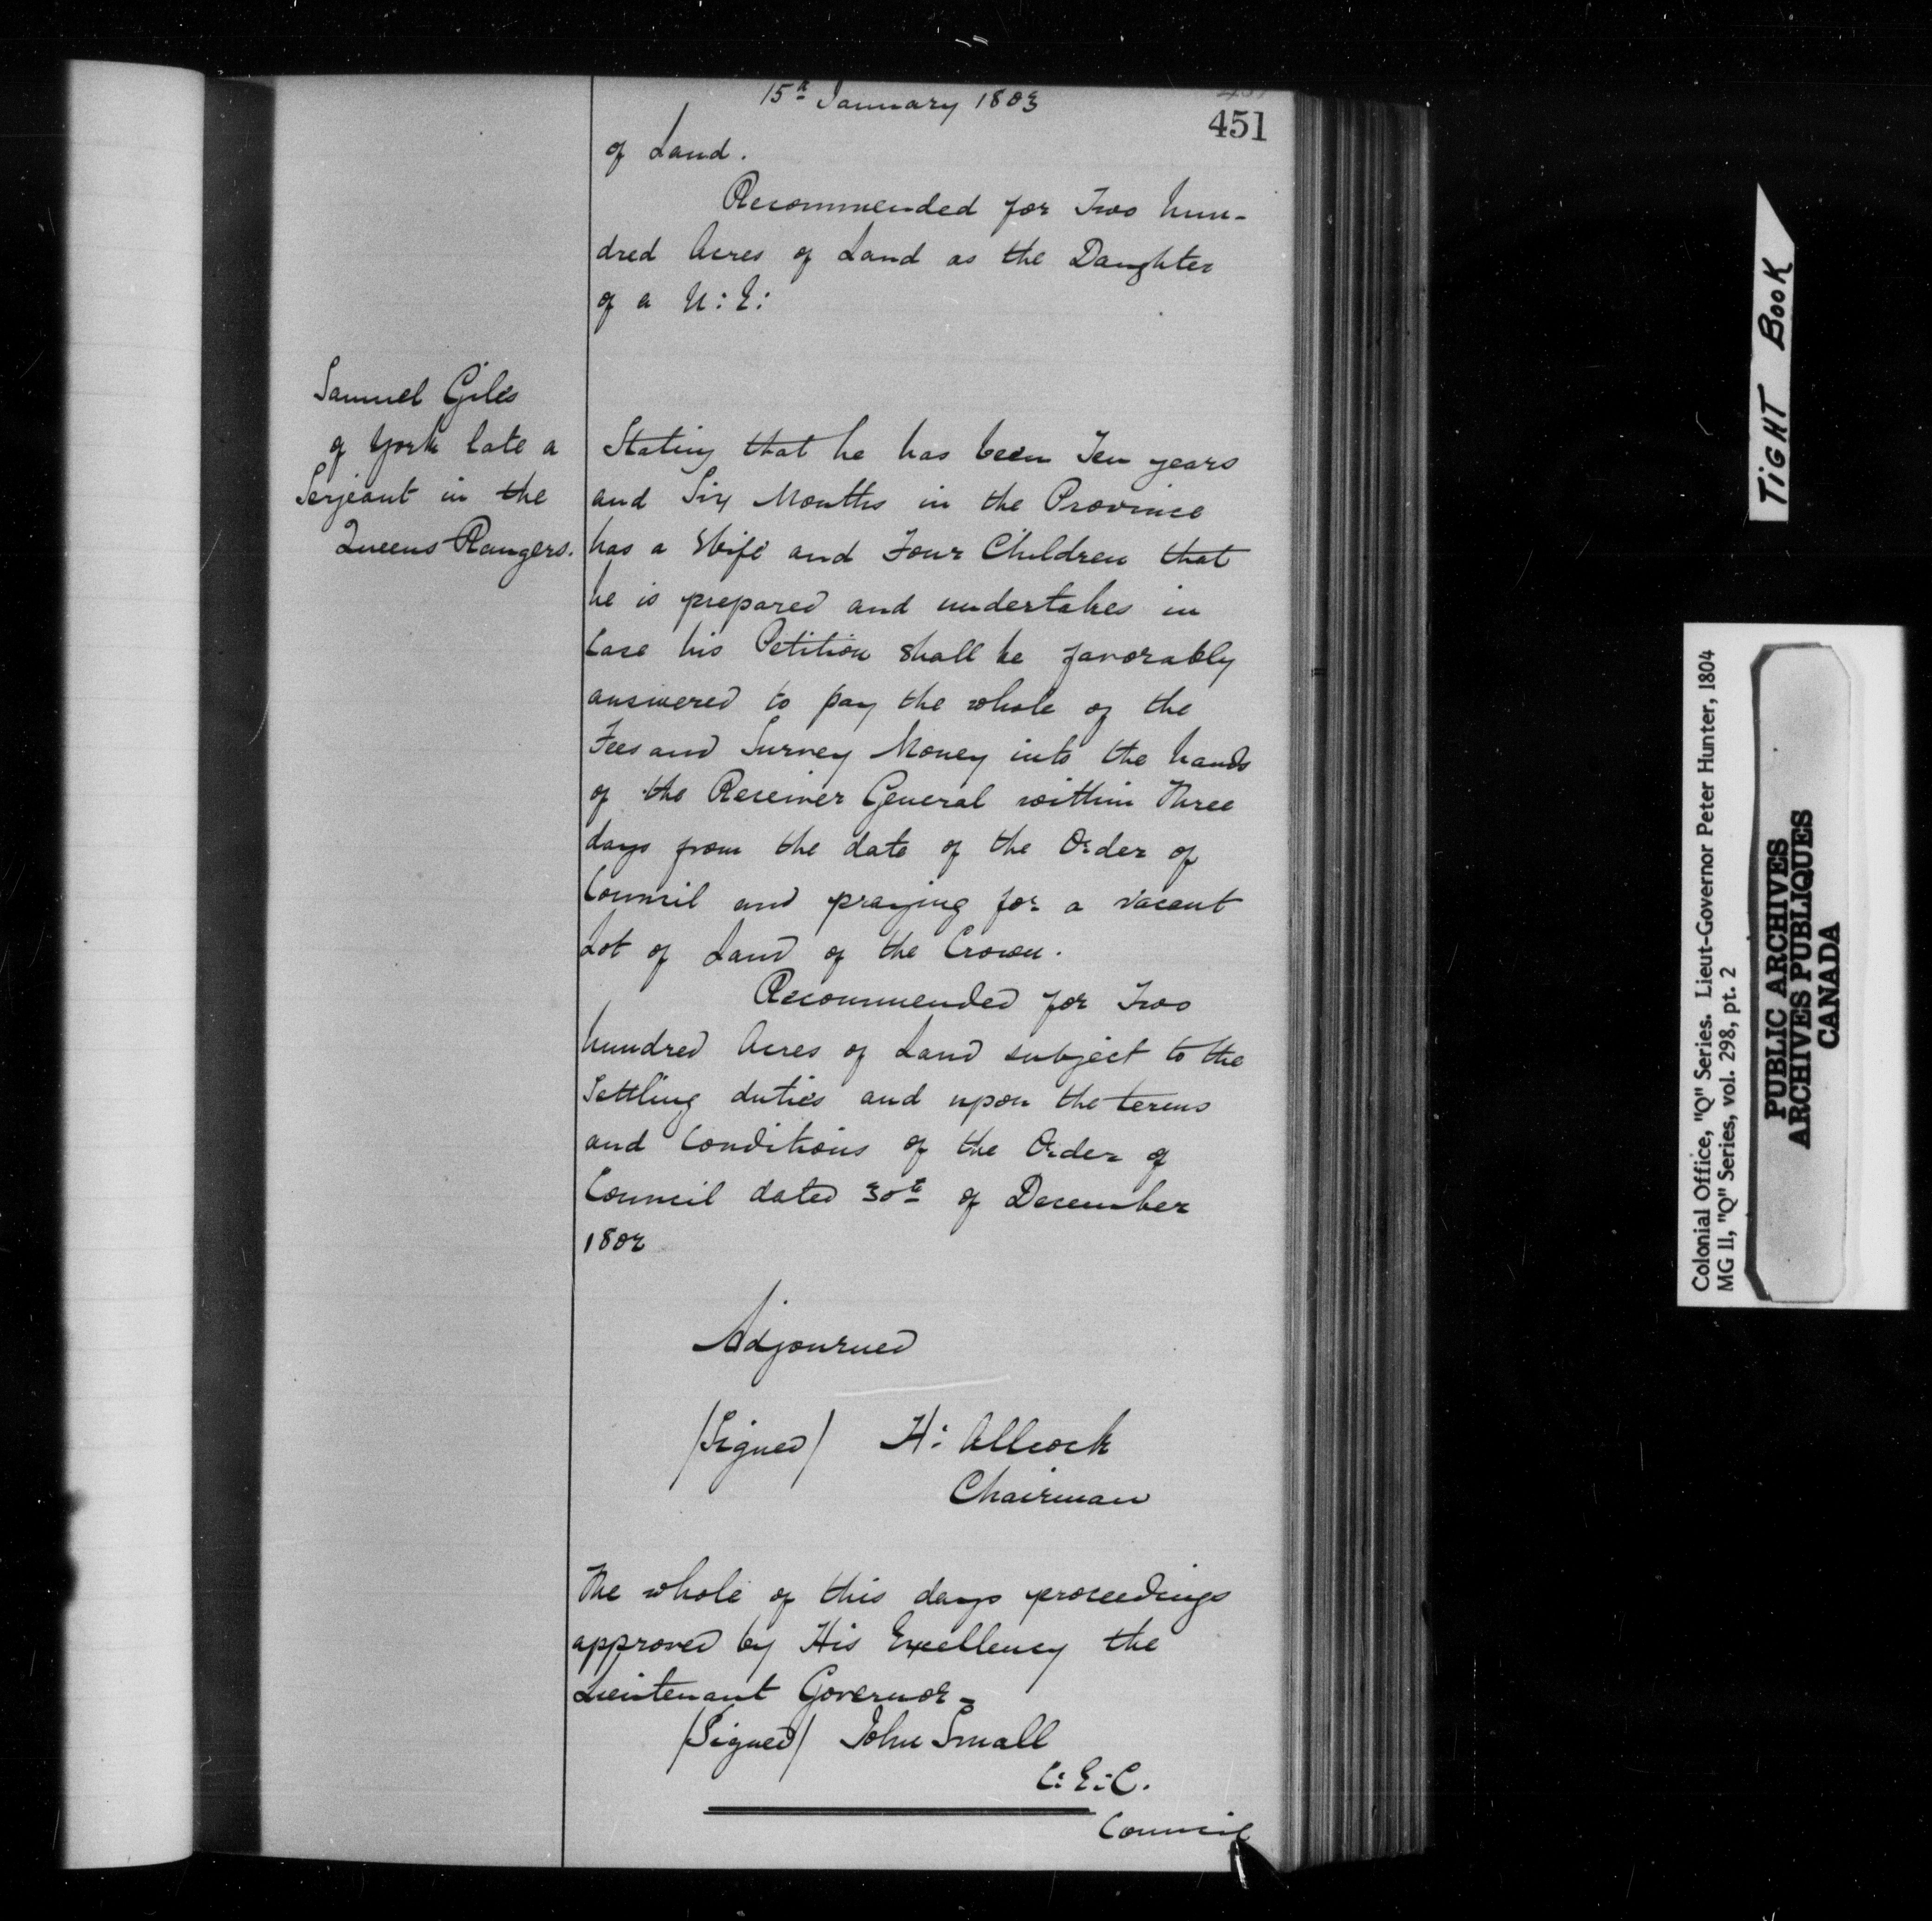 15th January 1803
451
of Land.
Recommended for Two hun-
dred Acres of Land as the Daughter
of a U: E:
Samuel Giles
of York late a
Serjeant in the
Queens Rangers.
Stating that he has been Ten years
and Six Months in the Province
has a Wife and Four Children that
he is prepared and undertakes in
Case his Petition shall be favorably
answered to pay the whole of the
Fees and Survey Money into the hands
of the Receiver General within Three
days from the date of the Order of
Council and praying for a vacant
Lot of Land of the Crown.
Recommended for Two
hundred Acres of Land subject to the
Settling duties and upon the terms
and Conditions of the Order of
Council dated 30th of December
1802
Adjourned
/Signed/ H: Allcock
Chairman
The whole of this days proceedings
approved by His Excellency the
Lieutenant Governor =
/Signed/ John Small
C: E: C.
Council
TIGHT BOOK
Colonial Office, "Q" Series. Lieut-Governor Peter Hunter, 1804
MG 11, "Q" Series, vol. 298, pt. 2
PUBLIC ARCHIVES
ARCHIVES PUBLIQUES
CANADA